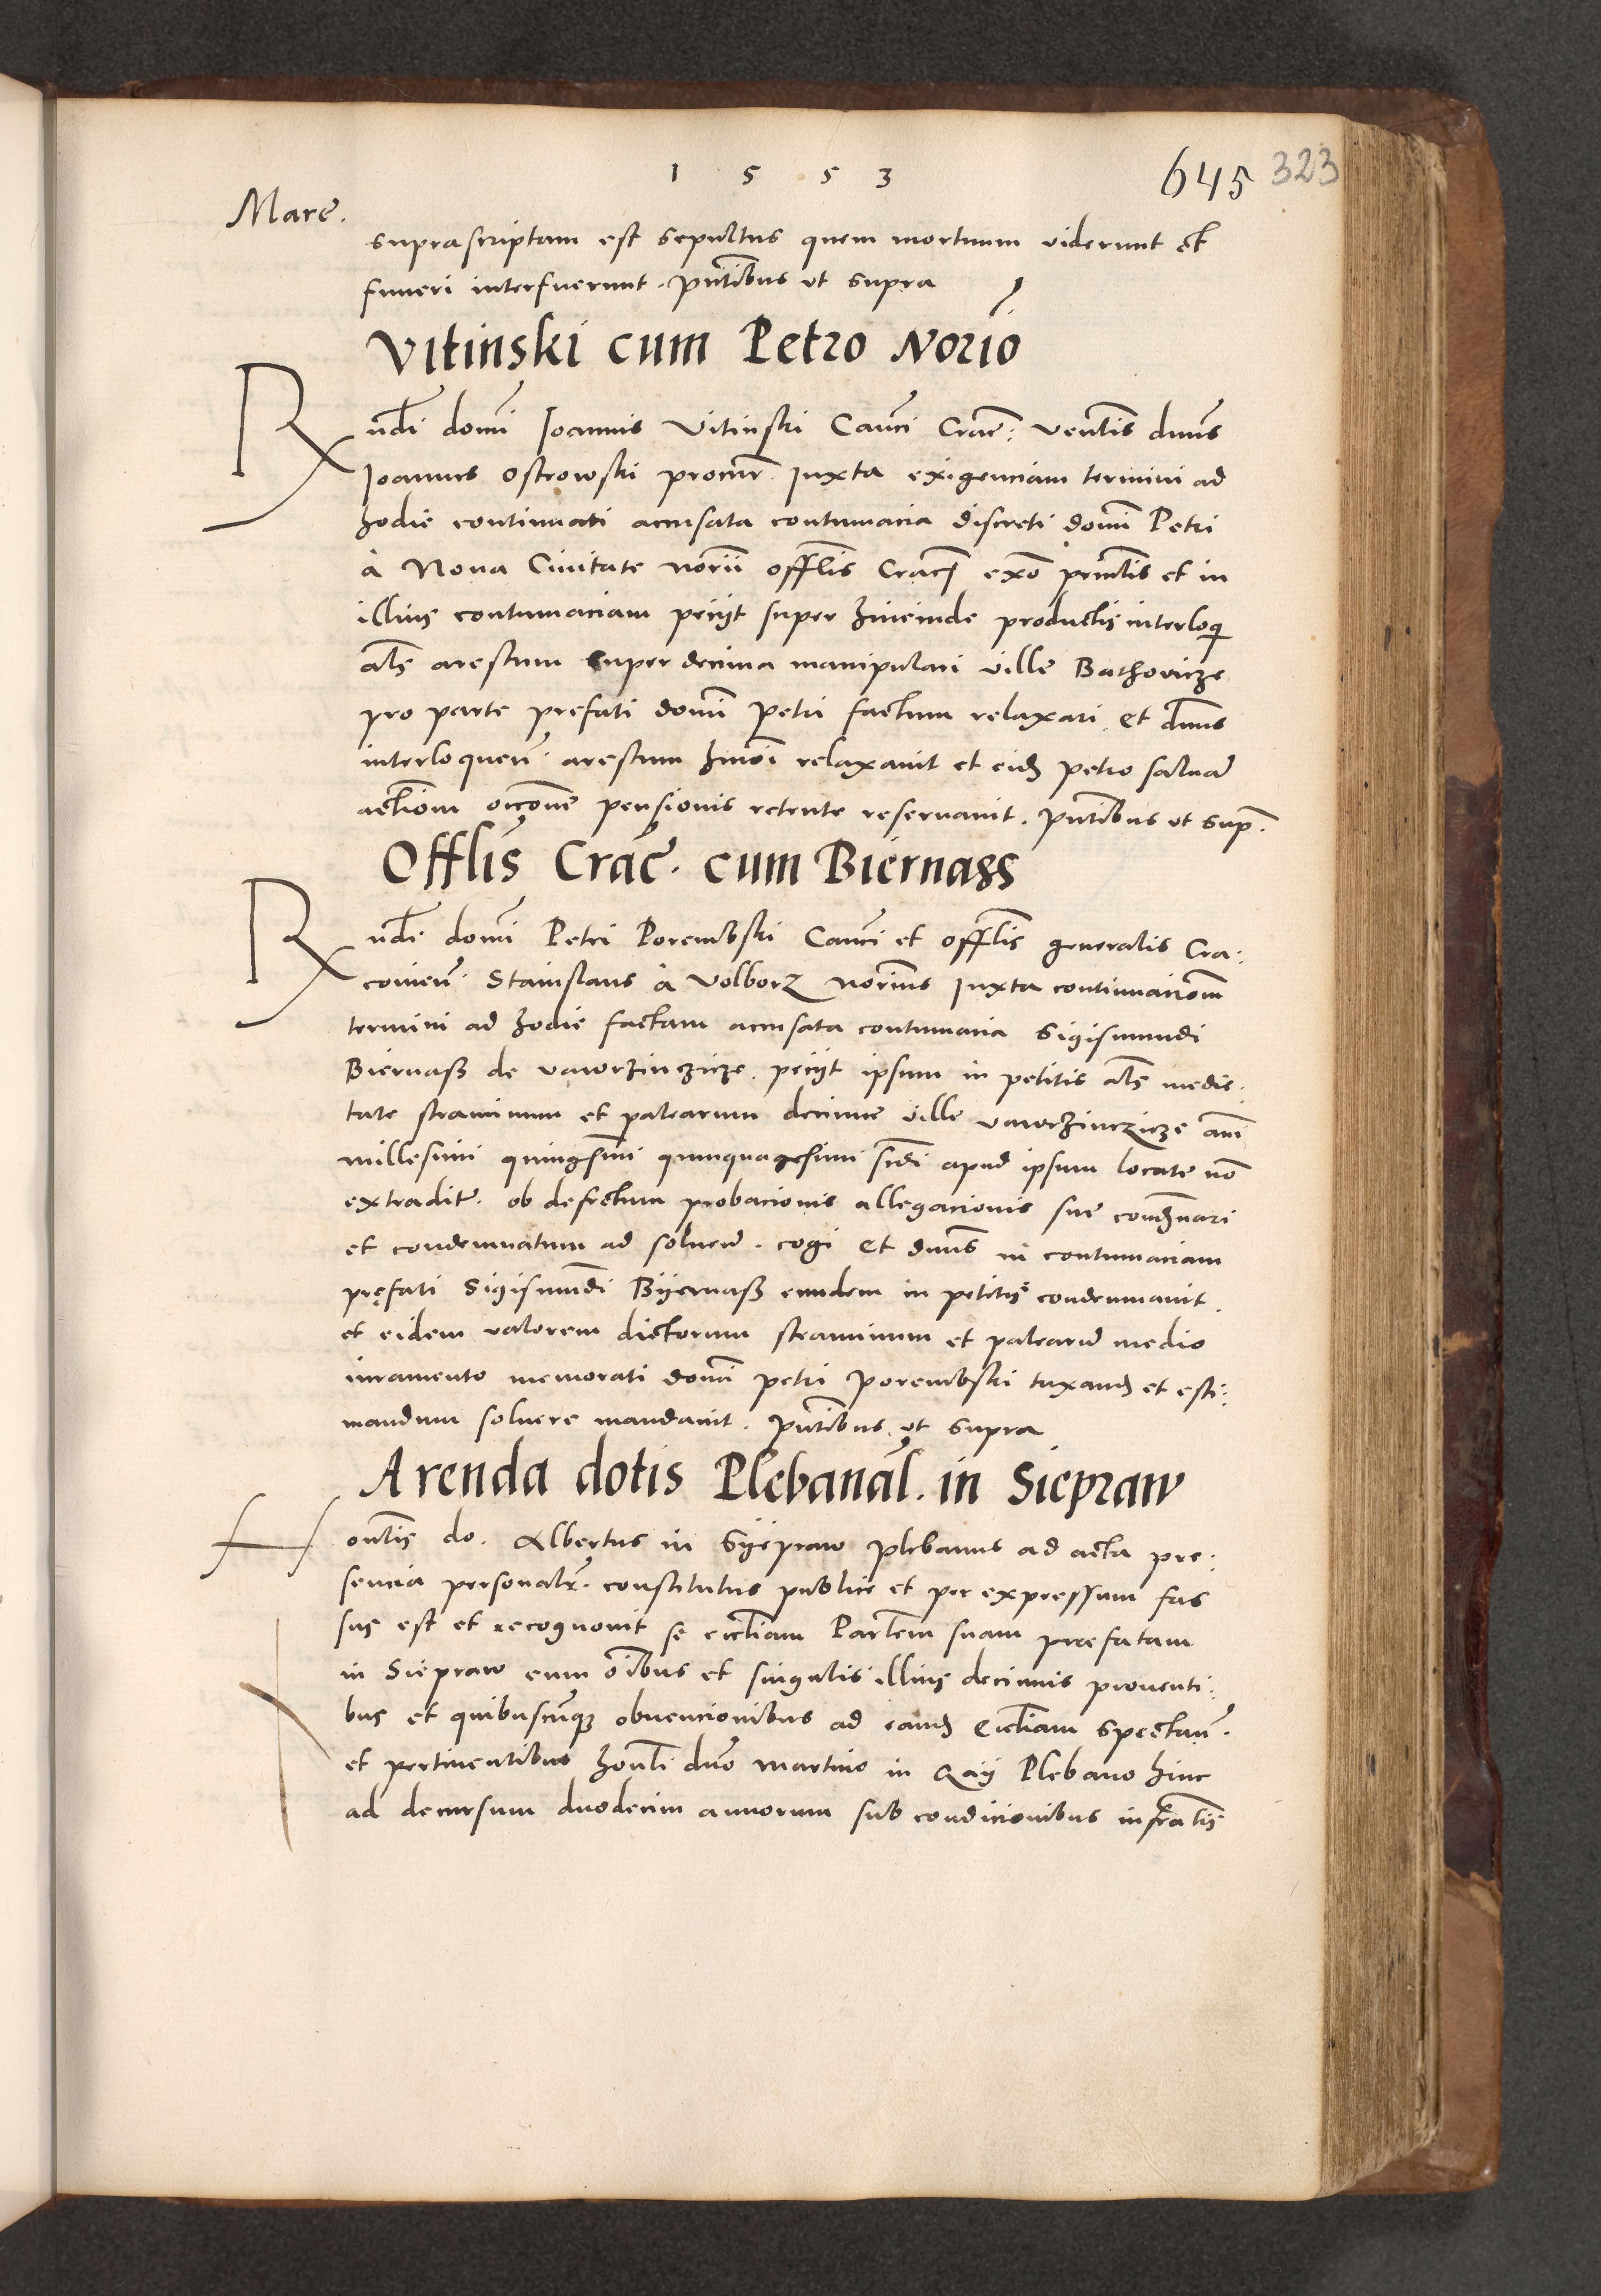 1 5 5 3
645 323
Marc̄.
suprascriptam est sepultus quem mortuum viderunt et
funeri interfuerunt. pñtibus ut supra
Vitinski cum Petro Norio
Rndi domi Joannis Vitinski Canci Crac: ventis dnus
Joannes Ostrowski procur Juxta exigenciam termini ad
hodie continuati accusata contumacia discreti domi Petri
à Nova Civitate norii offlis Crac exo printis et in
illius contumaciam peciit super hincinde productis interloq
als arestum super decima manipulari ville Bathovicze
pro parte prefati domi Petri factum relaxari et dnus
interloquen. arestum hmoi relaxavit et eid Petro salva
actiom occone pensionis retente reservavit. pñtibus ut sup.
Offlis Crac. cum Biernass
Rndi domi Petri Porembski Canci et offlis generalis Cra:
covien. Stanislaus à Volborz norius Juxta continuaciom
termini ad hodie factam accusata contumacia Sigismundi
Biernaß de vawrzinczicze. peciit ipsum in petitis als medie:
tate straminum et palearum decime ville vawrzinczicze ani
millesimi quingsimi quinquagesimi sndi apud ipsum locate no
extradit. ob defectum probacionis allegacionis sue condnari
et condemnatum ad solven. cogi et dnus in contumaciam
prefati Sigismundi Biiernaß eundem in petitis condemnavit.
et eidem valorem dictorum straminum et palearum medio
iuramento memorati domi Petri Porembski taxand et esti:
mandum solvere mandavit. pñtibus ut supra
Arenda dotis Plebanal. in Siepraw
Hontis do. Albertus in Syepraw plebanus ad acta pre:
sencia personalr. constitutus publice et per expressum fas
sus est et recognovit se eccliam Parlem suam praefatam
in Siepraw cum oibus et singulis illius decimis proventi:
bus et quibuscumque obvencionibus ad eand Eccliam spectan.
et pertinentibus honli dno Martino in Raij Plebano hinc
ad decursum duodecim annorum sub condicionibus infratis